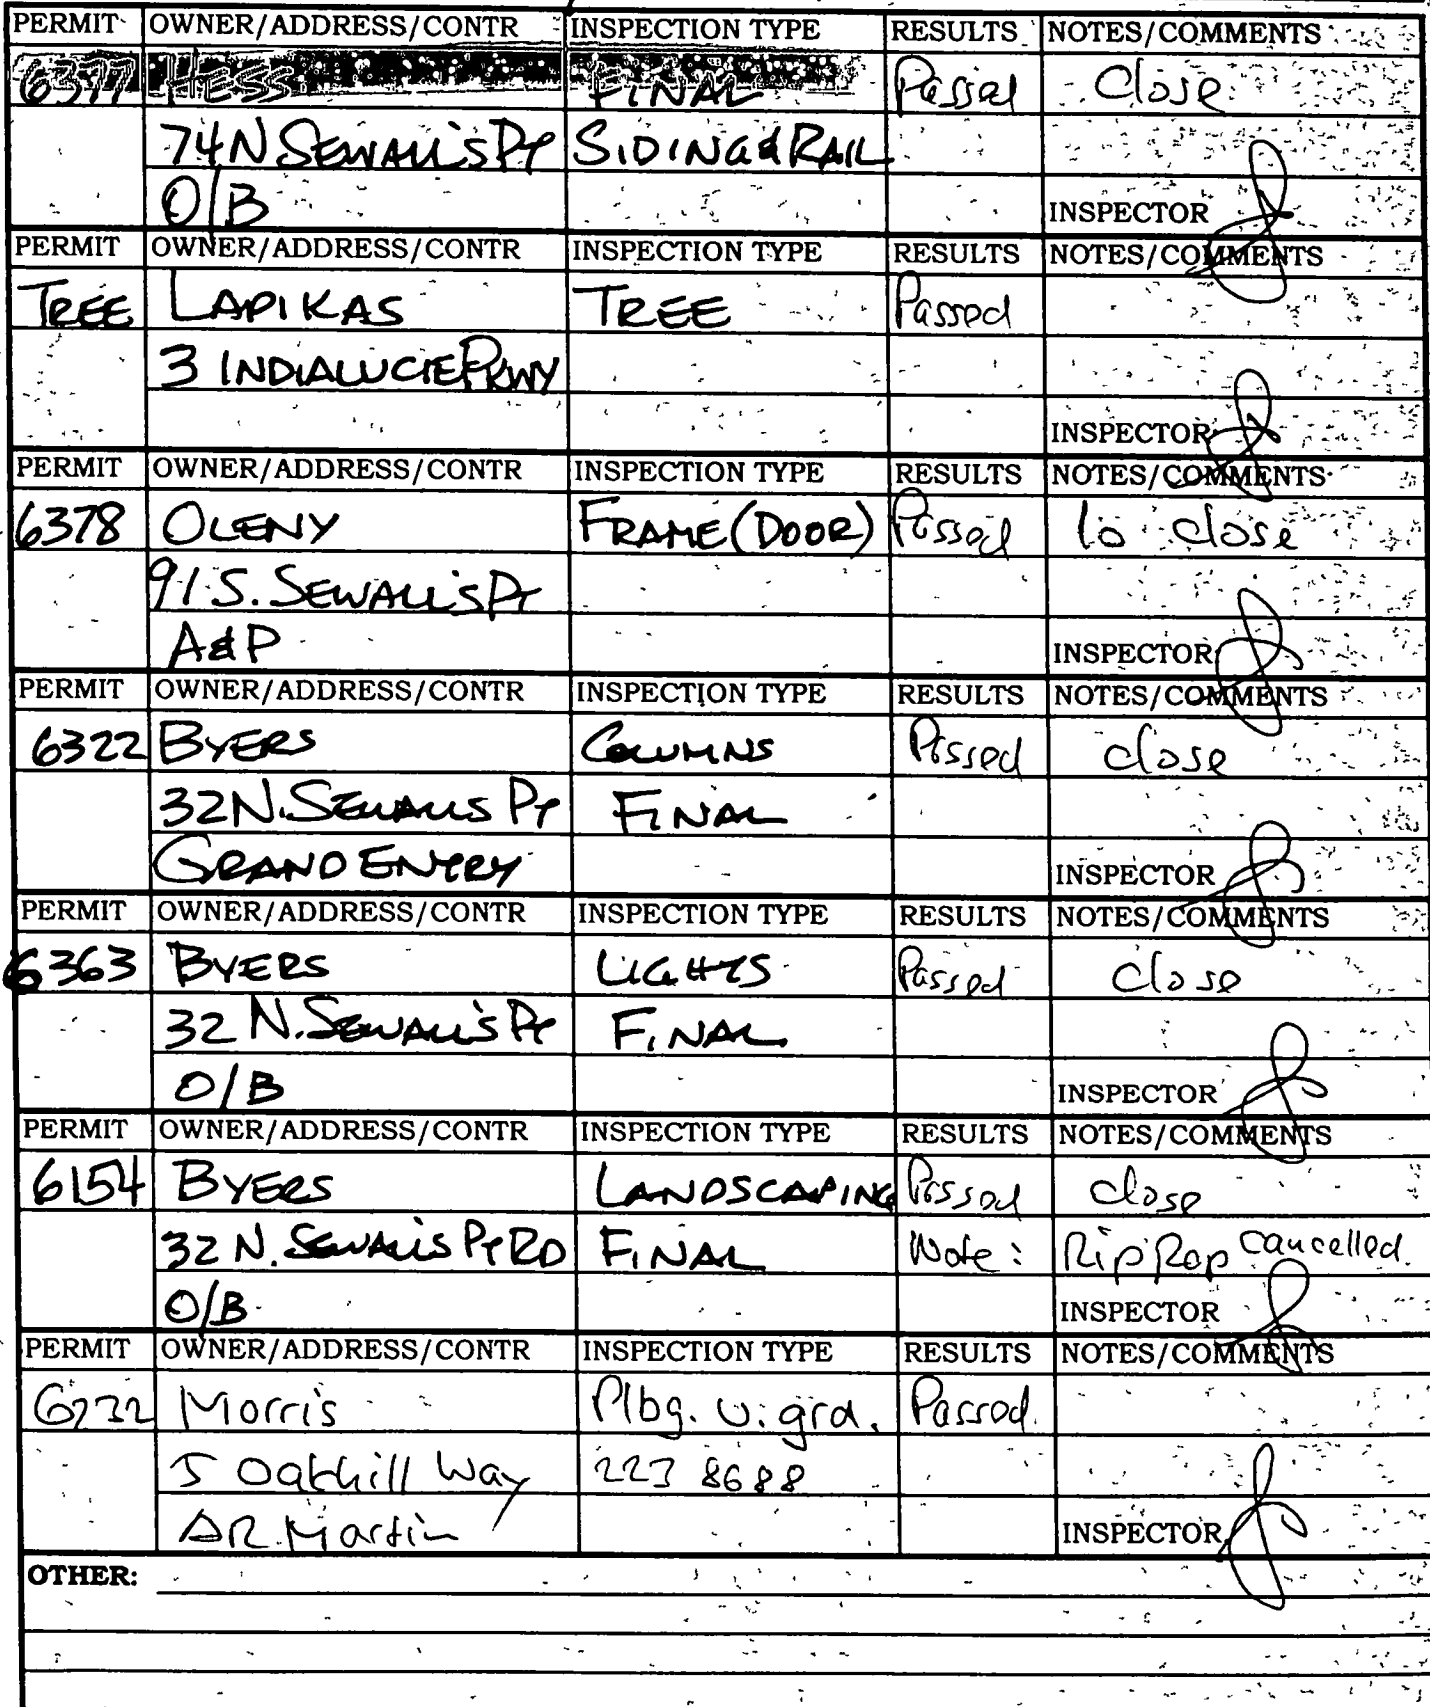 PERMIT OWNER/ADDRESS/CONTR INSPECTION TYPE RESULTS NOTES/COMMENTS
6377 HESS FINAL Passed Close
74 N SEWALL'S PT SIDING & RAIL
O/B INSPECTOR
PERMIT OWNER/ADDRESS/CONTR INSPECTION TYPE RESULTS NOTES/COMMENTS
TREE LAPIKAS TREE Passed
3 INDIALUCIE PKWY
INSPECTOR
PERMIT OWNER/ADDRESS/CONTR INSPECTION TYPE RESULTS NOTES/COMMENTS
6378 OLENY FRAME (DOOR) Passed to close
91 S. SEWALL'S PT
A&P INSPECTOR
PERMIT OWNER/ADDRESS/CONTR INSPECTION TYPE RESULTS NOTES/COMMENTS
6322 BYERS COLUMNS Passed close
32 N. SEWALLS PT FINAL
GRAND ENTRY INSPECTOR
PERMIT OWNER/ADDRESS/CONTR INSPECTION TYPE RESULTS NOTES/COMMENTS
6363 BYERS LIGHTS Passed Close
32 N. SEWALL'S PT FINAL
O/B INSPECTOR
PERMIT OWNER/ADDRESS/CONTR INSPECTION TYPE RESULTS NOTES/COMMENTS
6154 BYERS LANDSCAPING Passed close
32 N. SEWALL'S PT RD FINAL Note: Rip Rap cancelled.
O/B INSPECTOR
PERMIT OWNER/ADDRESS/CONTR INSPECTION TYPE RESULTS NOTES/COMMENTS
Morris Plbg. U. grd. Passed.
5 Oakhill Way 223 8688
DR. Martin INSPECTOR
OTHER: